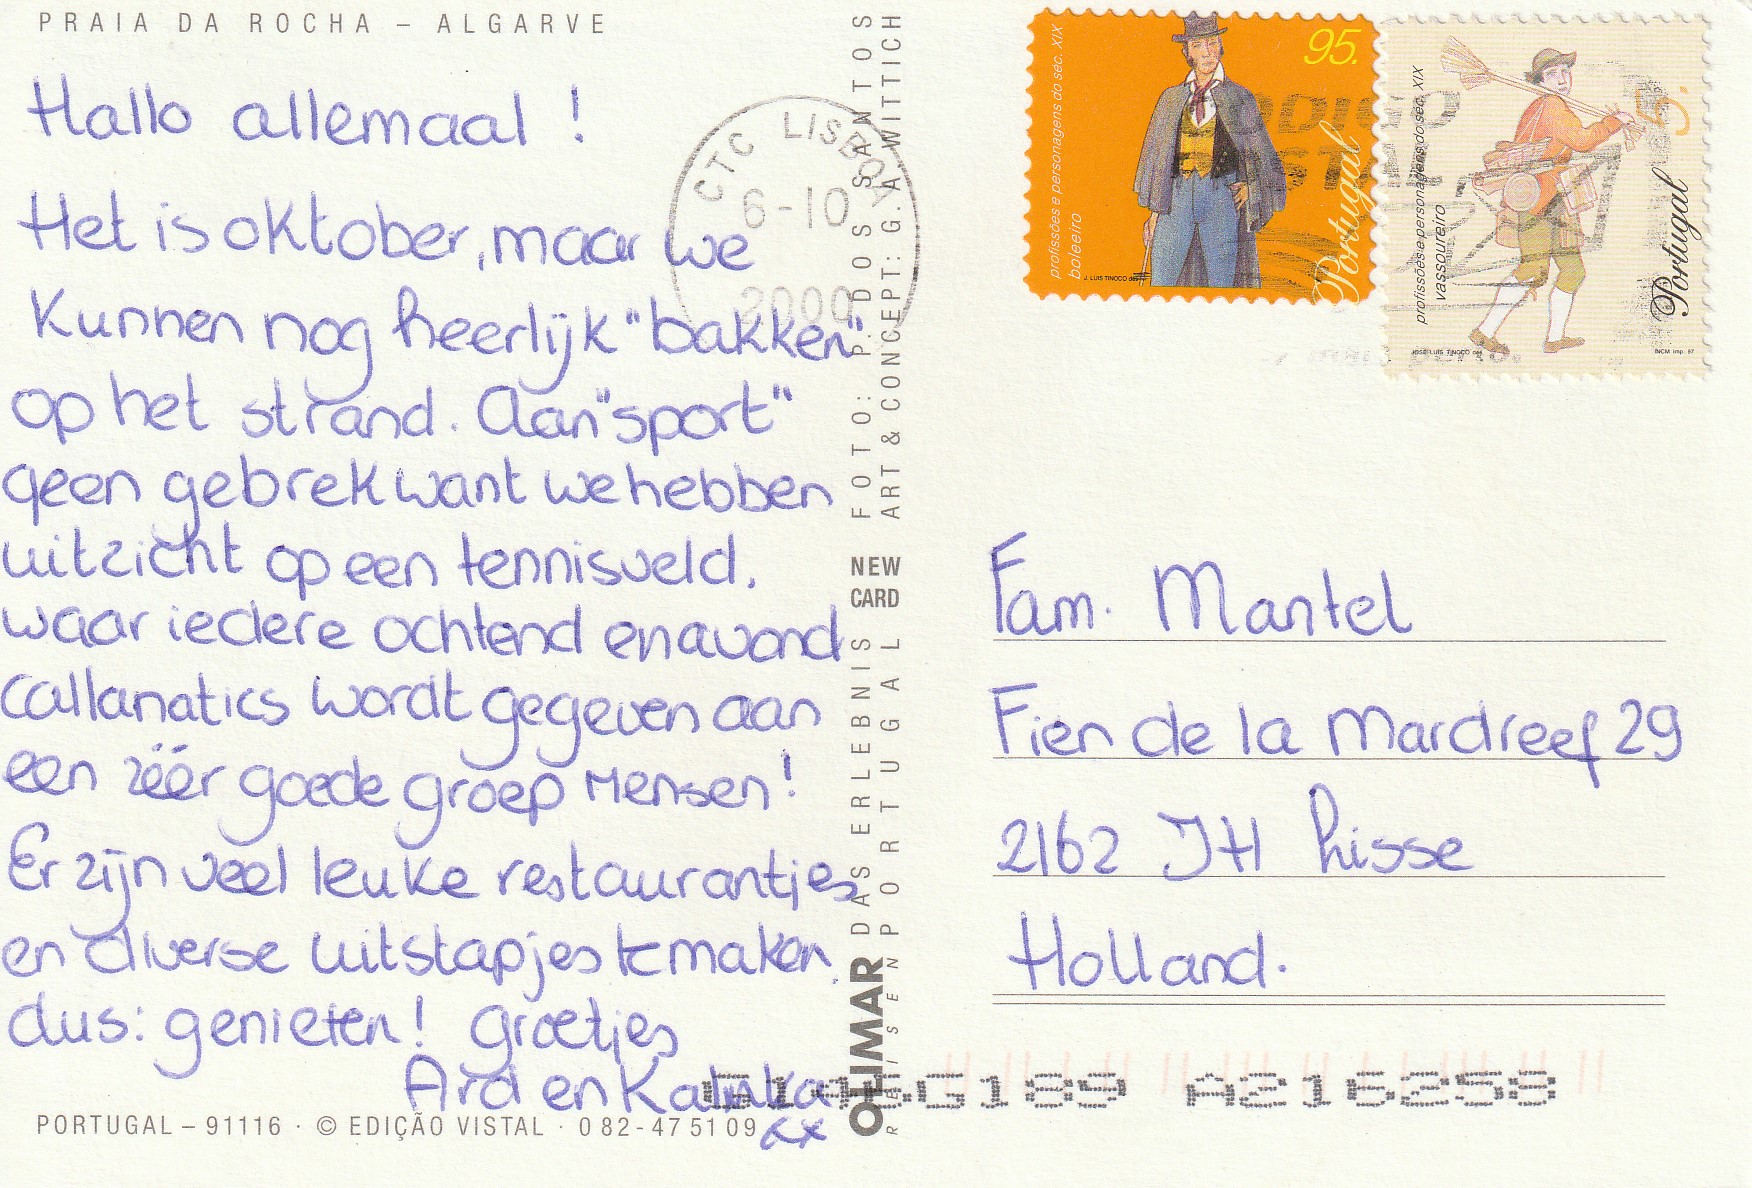 PRAIA DA ROCHA – ALGARVE
Hallo allemaal !
Het is oktober, maar we
kunnen nog heerlijk "bakken"
op het strand. Aan "sport"
geen gebrek want we hebben
uitzicht op een tennisveld,
waar iedere ochtend en avond
callanatics wordt gegeven aan
een zéér goede groep mensen!
Er zijn veel leuke restaurantjes
en diverse uitstapjes te maken,
dus: genieten! Groetjes
Ard en Kalinka
xx
PORTUGAL – 91116 · © EDIÇÃO VISTAL · 0 82 - 47 51 09
FOTO: P. DOS SANTOS
ART & CONCEPT: G. A. WITTICH
NEW
CARD
DAS ERLEBNIS
PORTUGAL
OLIMAR
REISEN
CTC LISBOA
6-10
2000
95.
profissões e personagens do séc. XIX
boleeiro
J. LUIS TINOCO des.
Portugal
5.
profissões e personagens do séc. XIX
vassoureiro
JOSÉ LUIS TINOCO des.
INCM imp. 97
Portugal
Fam. Mantel
Fien de la Mardreef 29
2162 JH Lisse
Holland.
A216258